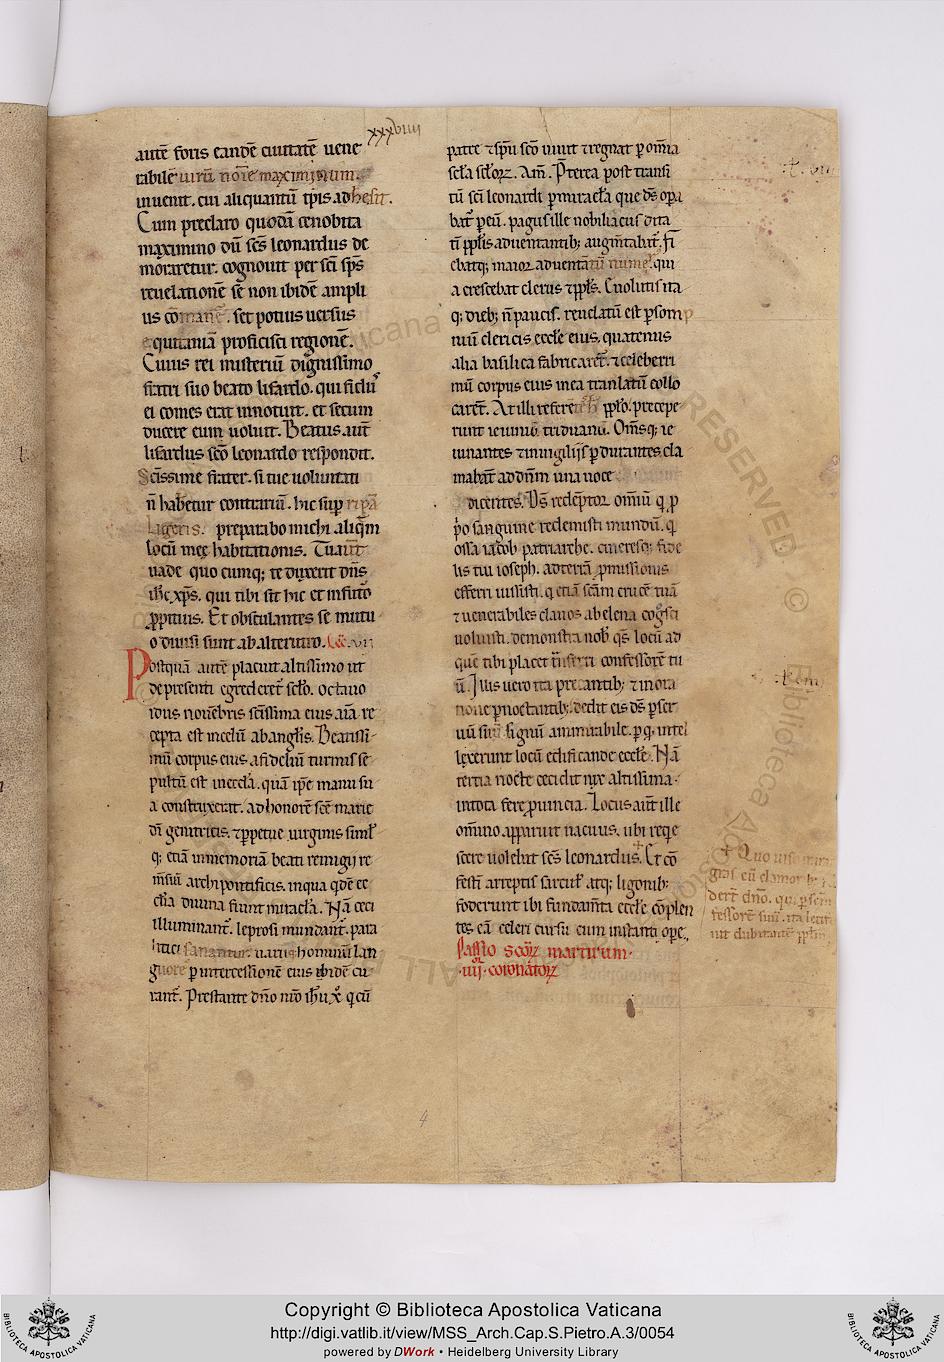 xxxviiii
autē foris eandē ciuitatē uene
rabilē uirū noīe maximinum.
inuenit. cui aliquantū tp̄is adhesit.
Cum preclaro quodā cenobita
maximino dū sc̄s leonardus de
moraretur. cognouit per sc̄i sp̄s
reuelationē se non ibidē ampli
us cōmanē. set potius uersus
equitaniā proficisci regionē.
Cuius rei misteriū dignissimo
fratri suo beato lifardo. qui fidus
ei comes erat innotuit. et secum
ducere eum uoluit. Beatus aut̄
lifardus sc̄o leonardo respondit.
Sc̄issime frater. si tue uoluntati
n̄ habetur contrariū. hic sup ripā
Ligeris. preparabo michi aliq̄m
locū meę habitationis. Tu aut̄
uade quo cumq; te duxerit dn̄s
ih̄c xp̄s. qui tibi sit hic et infuto
ꝓpitius. Et obsculantes se mutu
o diuisi sunt ab alterutro.
Postquā autē placuit altissimo ut
de presenti egrederet̄ sclo. octauo
idus nouēbris sc̄issima eius aīa re
cepta est in celū ab angl̄is. Beatissi
mū corpus eius a fideliū turmis se
pultū est in eccl̄a. quā ip̄e manu su
a construxerat. ad honorē sc̄e marie
dī genitricis. ⁊ ꝑpetue uirginis simił
q; etiā in memoriā beati remigij re
m̄siū archipontificis. in qua q̄dē ec
cl̄ia diuina fiunt miracl̄a. Nā ceci
illuminant̄. leprosi mundant̄. para
litici sanantur. uariis hominū lan
guore ꝑ intercessionē eius ibidē cu
rant̄. Prestante dn̄o nr̄o ih̄u xp̄o q cū
patre ⁊ sp̄u sc̄o uiuit ⁊ regnat ꝑ om̄ia
scl̄a scl̄oꝝ. Am̄. P̄terea post transi
tū sc̄i leonardi ꝑ miracl̄a que dn̄s opa
bat̄ ꝑ eū. pagus ille nobiliacus dicta
tī pp̄lis aduentantib; augm̄tabat̄. fi
ebatq; maior aduentātū nume. qui
a crescebat clerus ⁊ ppl̄s. Euolutis ita
q; dieb; n̄ paucis. reuelatū est ꝑ somp
niū clericis eccl̄e eius. quatenus
alia basilica fabricaret̄. ⁊ celeberri
mū corpus eius in ea tranlatū collo
caret̄. At illi ppl̄o. precepe
runt ieiuniū triduanū. Om̄sq; ie
iunantes ⁊ in uigilijs ꝑdurantes. cla
mabant̄ ad dn̄m una uoce
dicentes. Ds̄ redēptor omniū q ꝓ
p̄o sanguine redemisti mundū. q
ossa iacob patriarche. cineresq; fide
lis tui ioseph. ad terrā ꝓmissionis
efferri iussisti. q etiā sc̄am crucē tuā
⁊ uenerabiles clauos ab elena cog̃sci
uoluisti. demonstra nob̄ q̄s locū ad
quē tibi placet transferri confessorē tu
ū. Illis uero ita precantib; ⁊ in ora
tione ꝑnoctantib; dedit eis ds̄ ꝑ ser
uū suū signū ammirabile. ꝑ q intel
lexerunt locū edificande eccl̄e. Nā
tertia nocte cecidit nix altissima.
in tota fere ꝓuincia. Locus aut̄ ille
om̄ino apparuit uacuus. ubi reqe
scere uolebat sc̄s leonardus. Et cō
fest̄ arreptis sarcul̄ atq; ligonib;
foderunt ibi fundam̄ta eccl̄e cōplen
tes eā celeri cursu cum instanti ope.
Passio sc̄oꝝ martirum.
.iiij. coronatoꝝ
Quo uiso
gr̄as eū clamor
dert̄ dn̄o. qui ꝑ sc̄m
fessorē suū. ita letifi
uit dubitantē ppl̄m
4
Copyright © Biblioteca Apostolica Vaticana
http://digi.vatlib.it/view/MSS_Arch.Cap.S.Pietro.A.3/0054
powered by DWork • Heidelberg University Library
BIBLIOTECA APOSTOLICA VATICANA
BIBLIOTECA APOSTOLICA VATICANA